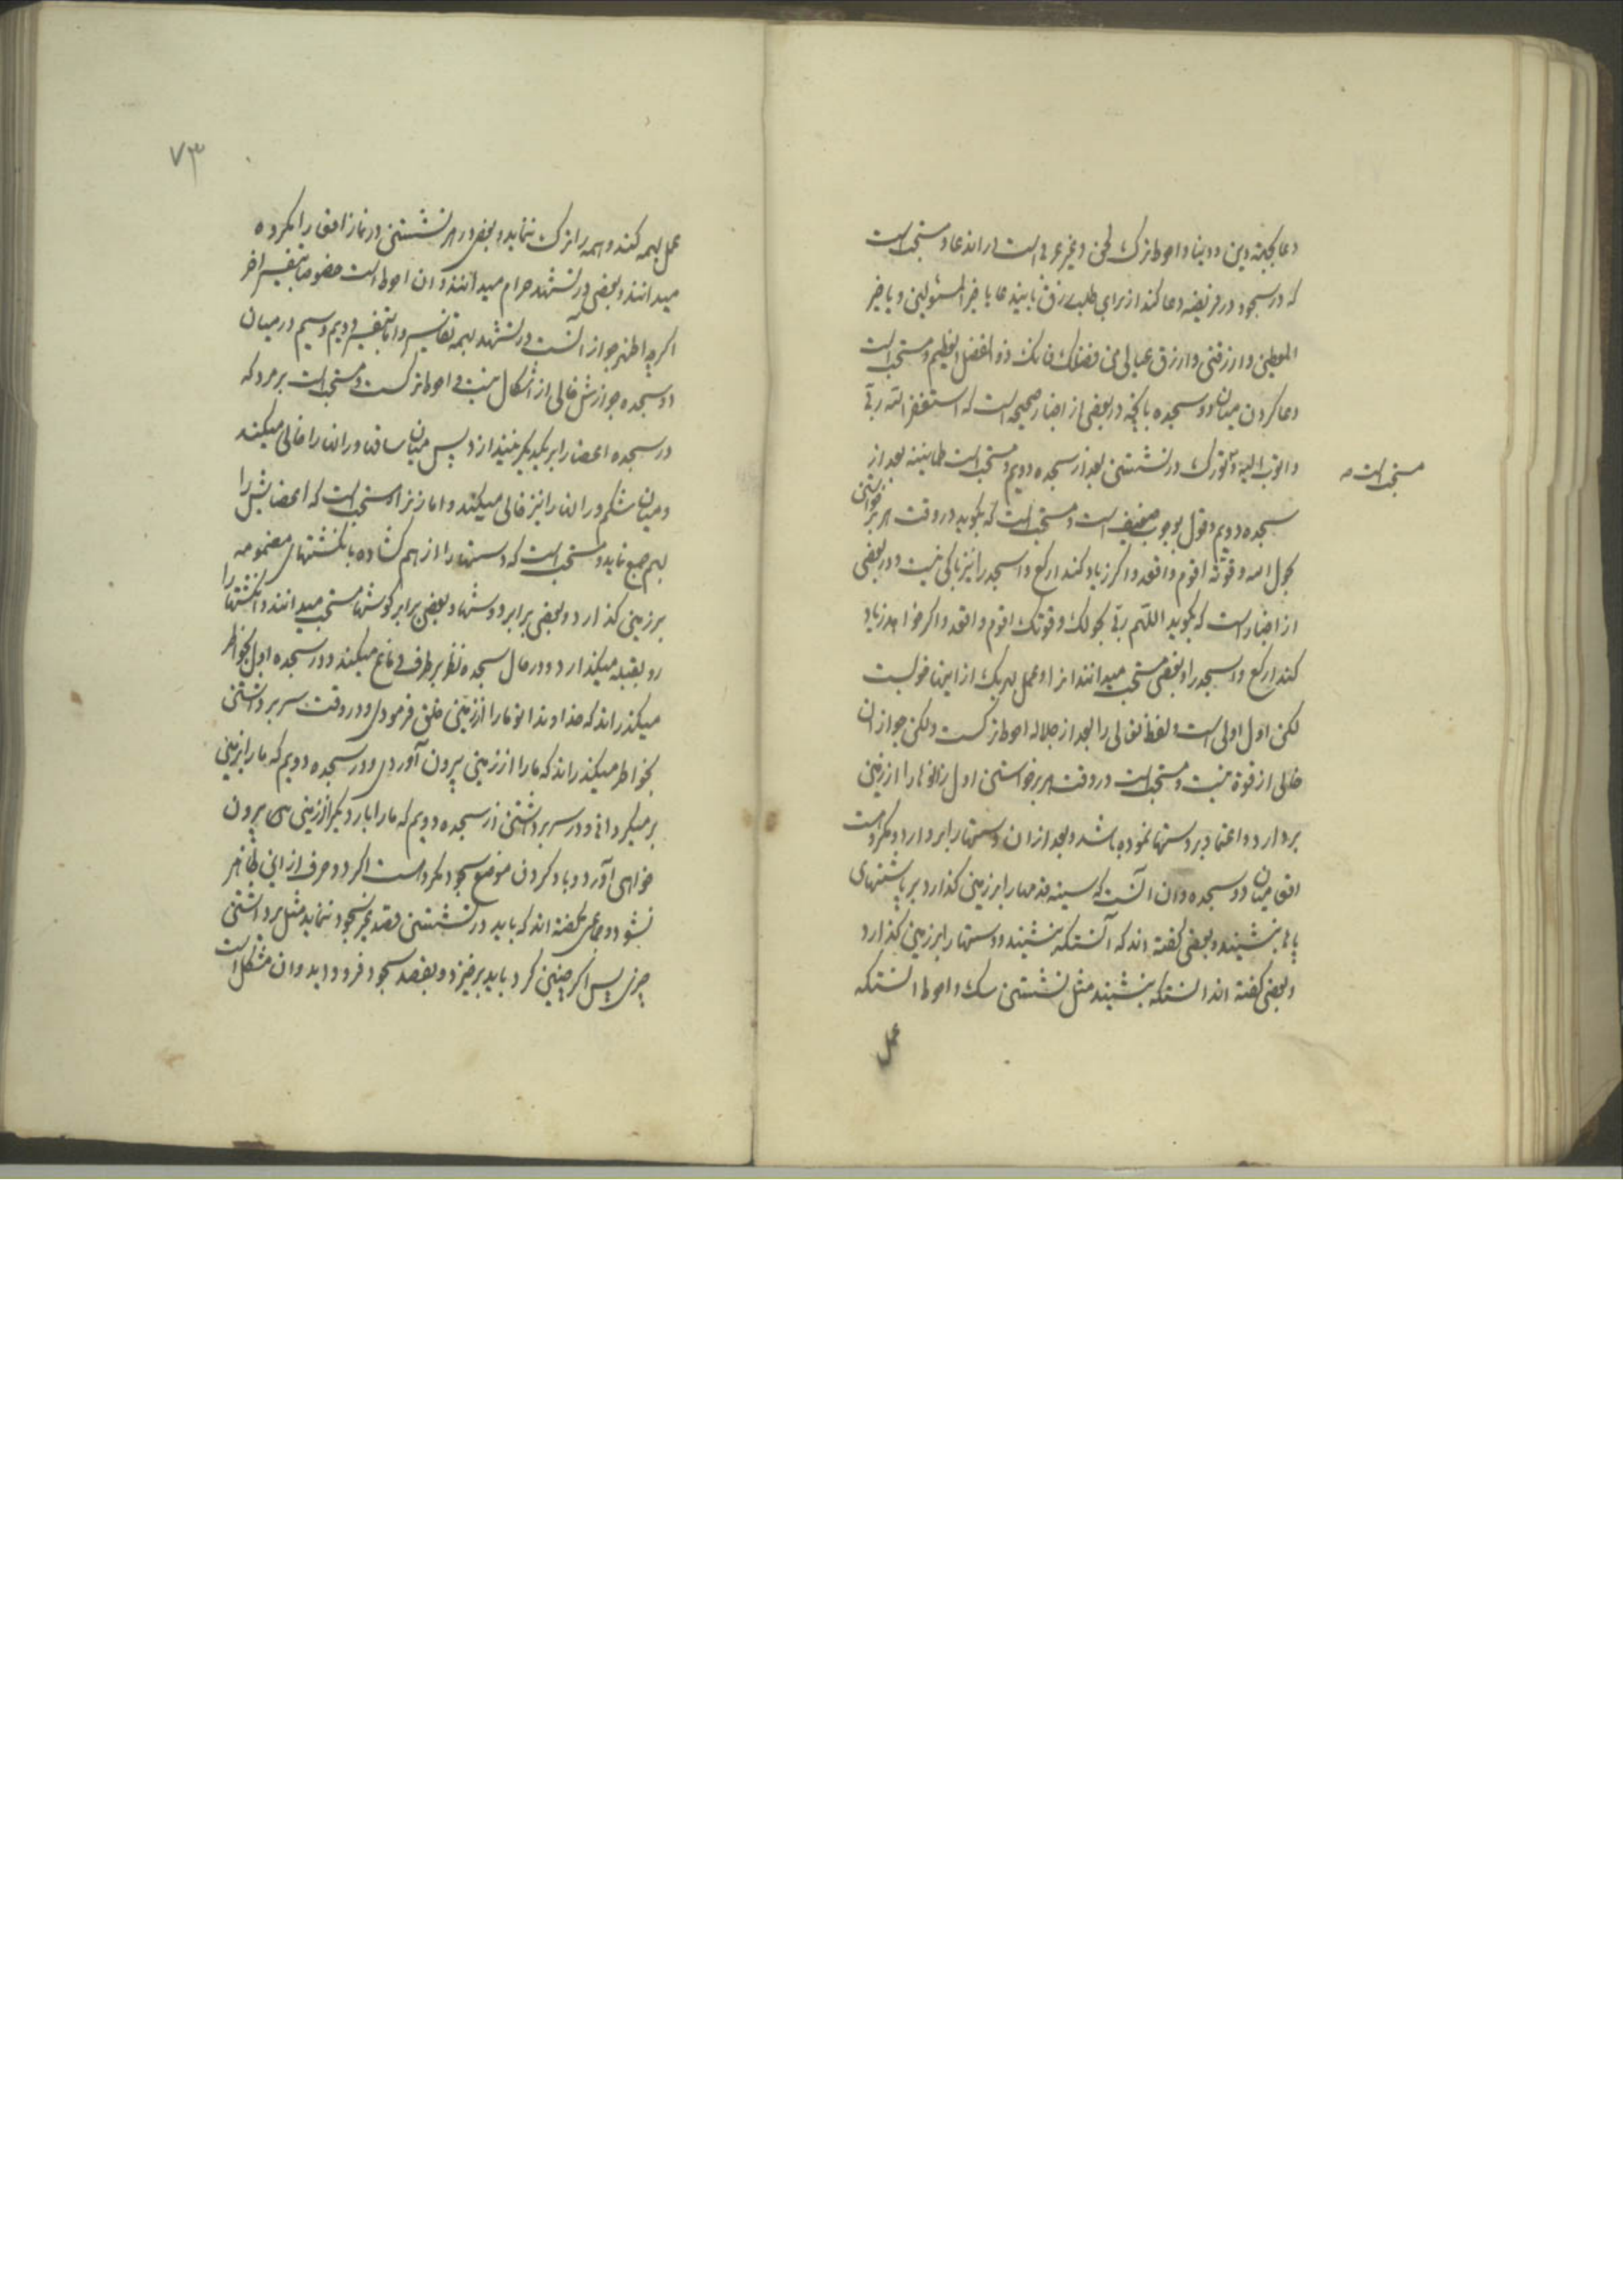 دعا بجهة دین و دنیا و احوط ترک لحن و غیر عربی است در اندعا و مستحب است
که در سجود در فریضه دعا کند از برای طلب رزق بایندعا یا خیر المسئولین و یا خیر
المعطین وارزقنی وارزق عیالی من فضلک فانک ذو الفضل العظیم و مستحب است
دعا کردن میان دو سجده بانچه در بعضی از اخبار صحیحه است که استغفر الله ربی
واتوب الیه و تورک در نشستن بعد از سجده دویم و مستحب است طمانینه بعد از
مستحب است صه
سجده دویم و قول بوجوب ضعیف است و مستحب است که بگوید در وقت برخواستن
بحول الله وقوته اقوم واقعد و اگر زیاد کند ارکع واسجد را نیز باکی نیست و در بعضی
از اخبار است که بگوید اللهم ربی بحولک وقوتک اقوم واقعد و اگر خواهد زیاد
کند ارکع واسجد را و بعضی مستحب میدانند انرا و عمل بهر یک از اینها خوبست
لکن اول اولی است و لفظ تعالی را بعد از جلاله احوط ترکست ولکن جواز ان
خالی از قوة نیست و مستحب است در وقت برخواستن اول زانوها را از زمین
بردارد و اعتماد بر دستها نموده باشد و بعد از ان دستها را بردارد و مکروهست
اقعا میان دو سجده و ان آنست که سینه قدمها را بر زمین گذارد بر پاشنهای
پاها بنشیند و بعضی گفته اند که آنستکه بنشیند و دستها را بر زمین گذارد
و بعضی گفته اند انستکه بنشیند مثل نشستن سک و احوط انستکه
عمل
۷۳
عمل بهمه کند و همه را ترک نماید و بعضی در هر نشستن در نماز اقعا را مکروه
میدانند و بعضی در تشهد حرام میدانند و ان احوط است خصوصا بتفسیر اخر
اگرچه اظهر جواز آنست در تشهد بهمه تفاسیر و اما بتفسیر دویم و سیم در میان
دو سجده جوازش خالی از اشکال نیست و احوط ترکست و مستحب است بر مرد که
در سجده اعضا را بر یکدیگر نیندازد پس میان ساقها و رانها را خالی میکند
و میان شکم و رانها را نیز خالی میکند و اما زنرا مستحب است که اعضایش را
بهم جمع نماید و مستحب است که دستها را از هم گشاده با انگشتهای مضمومه
بر زمین گذارد و بعضی برابر دوشها و بعضی برابر گوشها مستحب میدانند و انگشتها را
رو بقبله میگذارد و در حال سجده نظر بر طرف دماغ میکند و در سجده اول بخاطر
میگذراند که خداوندا تو ما را از زمین خلق فرمودی و در وقت سر برداشتن
بخواطر میگذراند که ما را از زمین بیرون آوردی و در سجده دویم که ما را بزمین
بر میگردانی و در سر برداشتن از سجده دویم که ما را بار دیگر از زمین بیرون
خواهی آورد و باد کردن موضع سجود مکروهست اگر دو حرف از این ظاهر
نشود و جماعتی گفته اند که باید در نشستن قصد غیر سجود ننماید مثل برداشتن
چیزی پس اگر چنین کرد باید برخیزد و بقصد سجود فرود اید و ان مشکل است